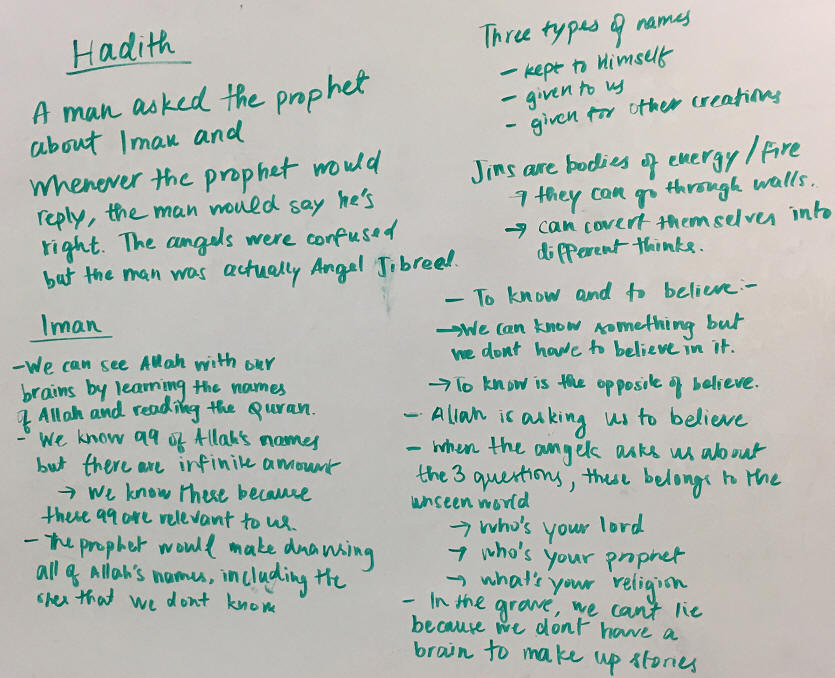 Hadith
A man asked the prophet
about Iman and
whenever the prophet would
reply, the man would say he's
right. The angels were confused
but the man was actually Angel Jibreel.
Iman
- We can see Allah with our
brains by learning the names
of Allah and reading the Quran.
- We know 99 of Allah's names
but there are infinite amount
→ we know these because
these 99 are relevant to us.
- The prophet would make dua using
all of Allah's names, including the
ones that we dont know
Three types of names
- kept to Himself
- given to us
- given for other creations
Jins are bodies of energy/fire
→ they can go through walls.
→ can covert themselves into
different thinks.
- To know and to believe:-
→ We can know something but
we dont have to believe in it.
→ To know is the opposite of believe.
- Allah is asking us to believe
- when the angels asks us about
the 3 questions, these belongs to the
unseen world
→ who's your lord
→ who's your prophet
→ what's your religion
- In the grave, we cant lie
because we dont have a
brain to make up stories